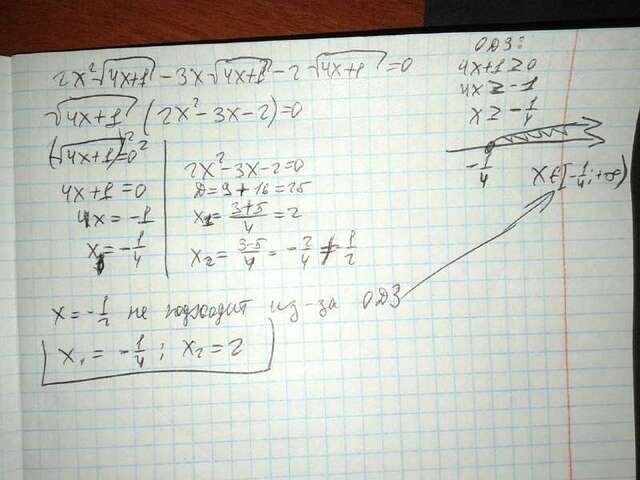 2x²√4x+1 - 3x√4x+1 - 2√4x+1 = 0
√4x+1 (2x² - 3x - 2) = 0
(√4x+1)² = 0²
4x+1 = 0
4x = -1
x = -1/4
2x² - 3x - 2 = 0
D = 9 + 16 = 25
x₁ = 3+5/4 = 2
x₂ = 3-5/4 = -2/4 = -1/2
ОДЗ:
4x+1 ≥ 0
4x ≥ -1
x ≥ -1/4
-1/4
x ∈ [-1/4; +∞)
x = -1/2 не подходит из-за ОДЗ
x₁ = -1/4; x₂ = 2